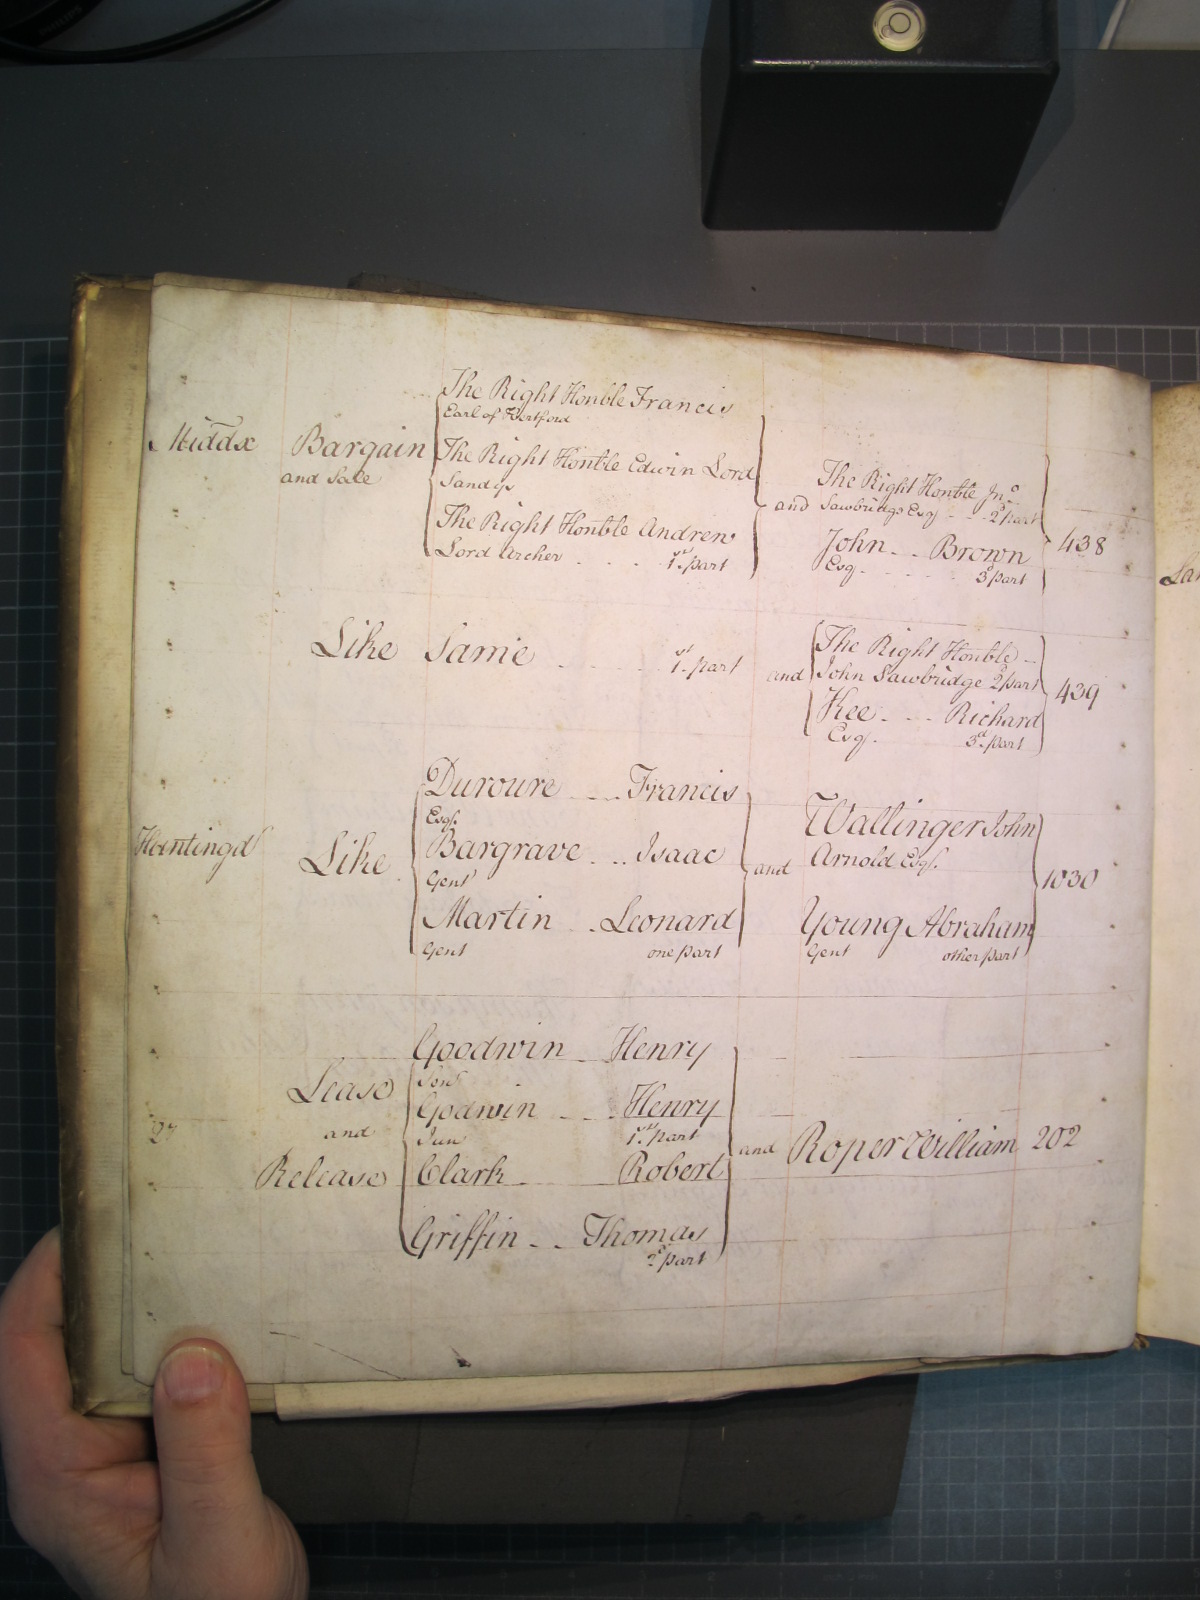 The Right Honble Francis
Earl of Hertford
Middx Bargain
and Sale
The Right Honble Edwin Lord
Sandys
The Right Honble Andrew
Lord Archer - - - 1st part
and The Right Honble Jno
Sawbridge Esq - - 2d part
John - - Brown
Esq - - - 3d part
438
Like Same - - - - 1st part
and The Right Honble -
John Sawbridge 2d part
Kee - - - Richard
Esq. 3d part
439
Huntingd Like
Duroure - - - Francis
Esqr.
Bargrave - - - Isaac
Gent
Martin - Leonard
Gent one part
and Wallinger John
Arnold Esqr.
Young Abraham
Gent other part
1030
Lease
and
Release
Goodwin - Henry
Senr
Godwin - - - Henry
Jun 1st part
Clark - - Robert
Griffin - - - Thomas
2d part
and Roper William 202